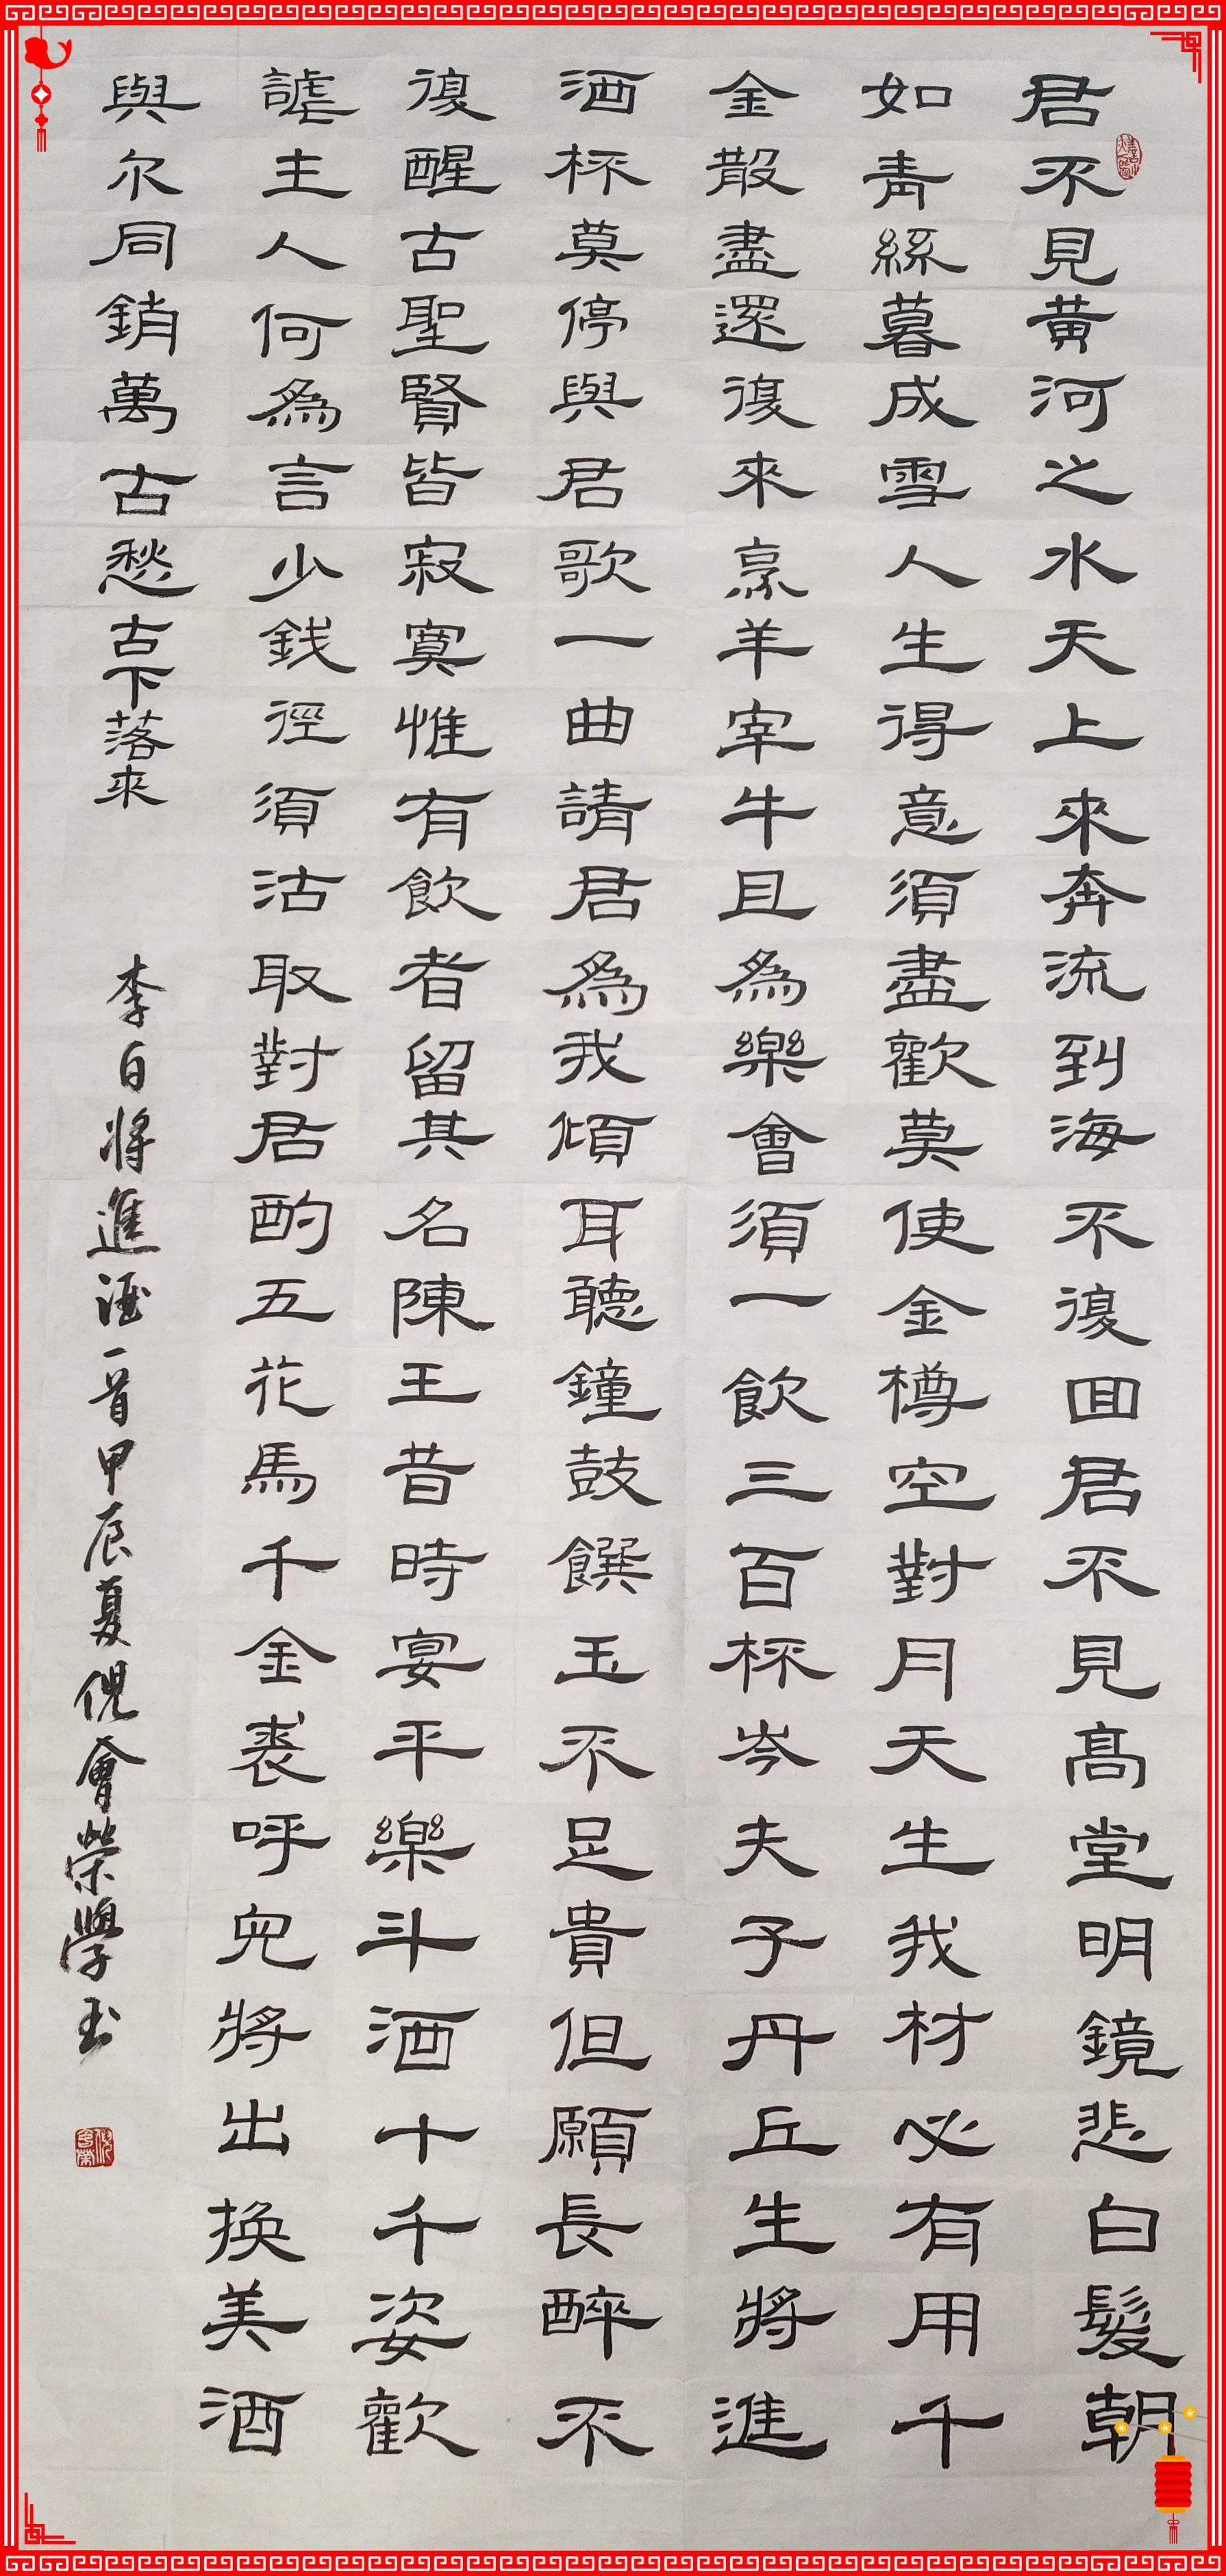 君不見黄河之水天上來奔流到海不復回君不見高堂明鏡悲白髮朝
如青絲暮成雪人生得意須盡歡莫使金樽空對月天生我材必有用千
金散盡還復來烹羊宰牛且為樂會須一飲三百杯岑夫子丹丘生將進
酒杯莫停與君歌一曲請君為我傾耳聽鐘鼓饌玉不足貴但願長醉不
復醒古聖賢皆寂寞惟有飲者留其名陳王昔時宴平樂斗酒十千姿歡
謔主人何為言少錢徑須沽取對君酌五花馬千金裘呼兒將出換美酒
與尔同銷萬古愁古下落來
李白將進酒一首甲辰夏倪會榮學书